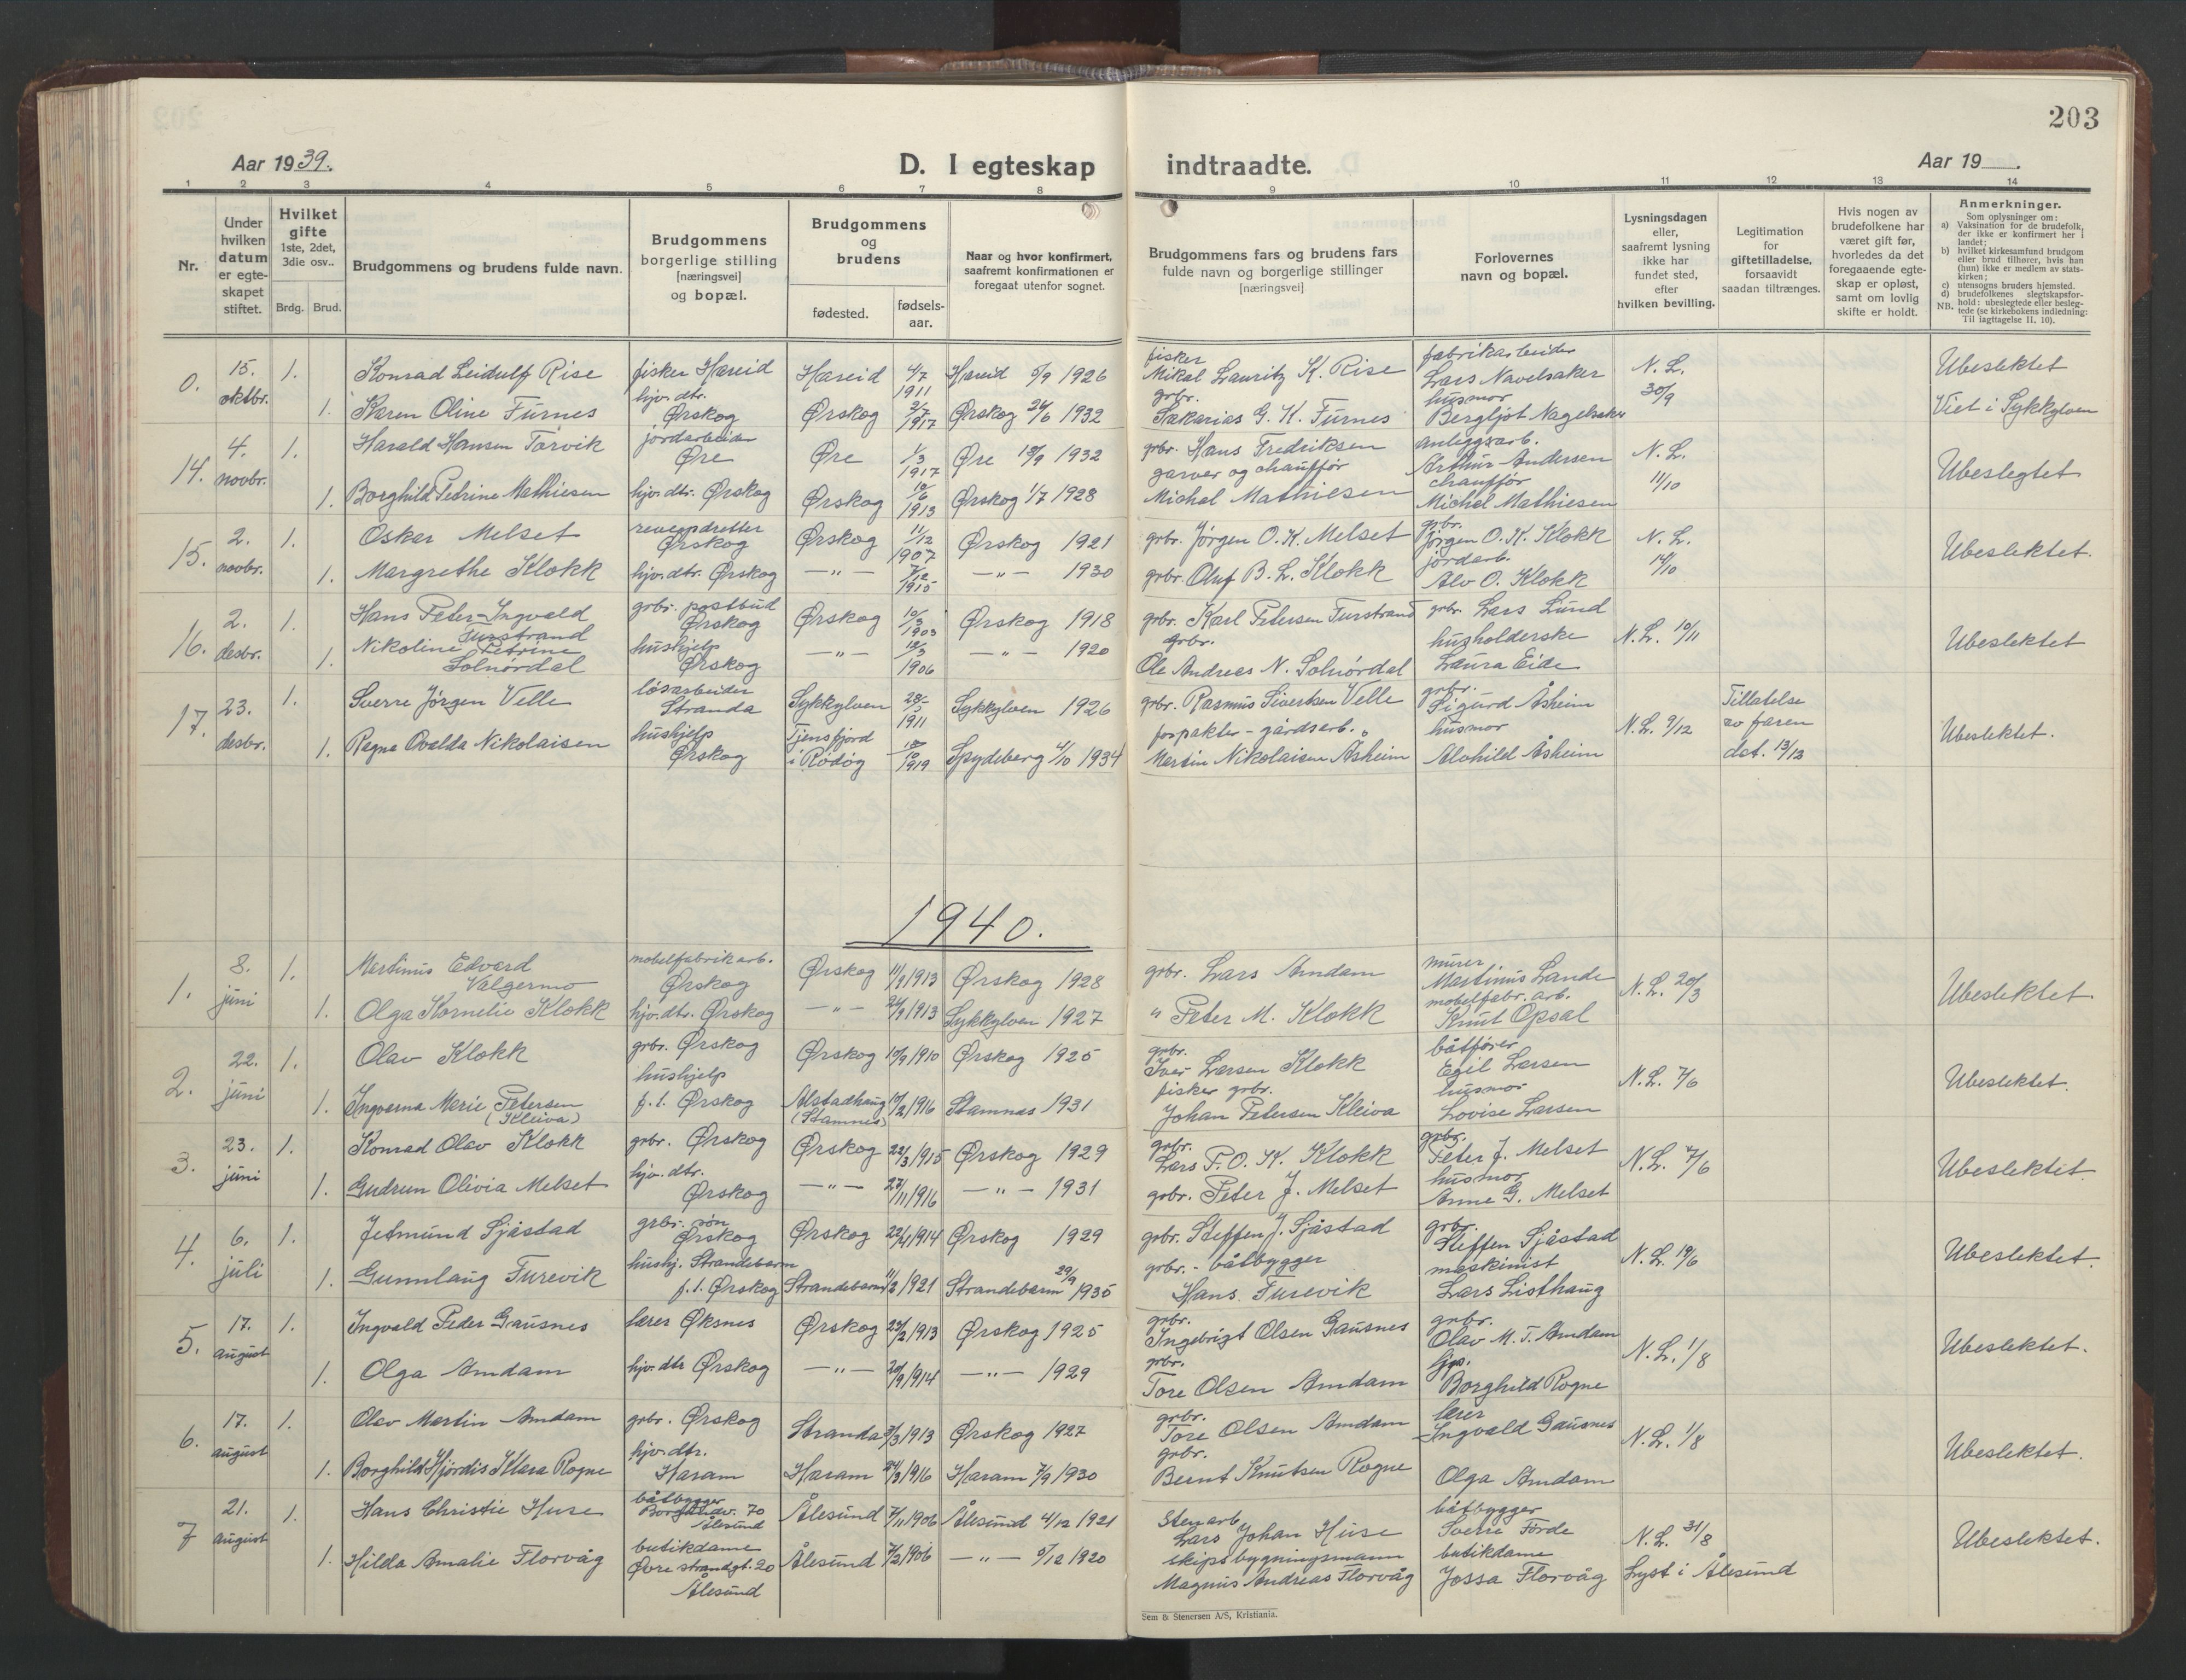 203
Aar 1939.
D. I egteskap indtraadte.
Aar 19 .
1 2 3 4 5 6 7 8 9 10 11 12 13 14
Nr.
Under hvilken datum er egte-skapet stiftet.
Hvilket gifte 1ste, 2det, 3die osv..
Brdg. Brud.
Brudgommens og brudens fulde navn.
Brudgommens borgerlige stilling [næringsvei] og bopæl.
Brudgommens og brudens
fødested.
fødsels-aar.
Naar og hvor konfirmert, saafremt konfirmationen er foregaat utenfor sognet.
Brudgommens fars og brudens fars fulde navn og borgerlige stillinger [næringsvei]
Forlovernes navn og bopæl.
Lysningsdagen eller, saafremt lysning ikke har fundet sted, efter hvilken bevilling.
Legitimation for giftetilladelse, forsaavidt saadan tiltrænges.
Hvis nogen av brudefolkene har været gift før, hvorledes da det foregaaende egte-skap er opløst, samt om lovlig skifte er holdt.
Anmerkninger.
Som oplysninger om:
a) Vaksination for de brudefolk, der ikke er konfirmert her i landet;
b) hvilket kirkesamfund brudgom eller brud tilhører, hvis han (hun) ikke er medlem av stats-kirken;
c) utensogns bruders hjemsted.
d) brudefolkenes slegtskapsfor-hold: ubeslegtede eller besleg-tede (se kirkebokens indledning:
NB. Til iagttagelse II. 10).
0. 15. oktbr. 1. Konrad Leidulf Rise fisker Hareid Hareid 4/7 1911 Hareid 5/9 1926 fisker Mikal Lauritz K. Rise fabrikarbeider Lars Navelsaker N. L. 30/9 Ubeslektet
1. Karen Oline Furnes hjv. dtr. Ørskog Ørskog 1917 Ørskog 26/6 1932 grbr. Sakarias G. K. Furnes husmor Bergljot Nagelsaker Viet i Sykkylven
14. 4. novbr. 1. Harald Hansen Torvik jordarbeider Øre Øre 1/3 1917 Øre 18/9 1932 grbr. Hans Fredriksen anleggsarb. Arthur Andersen N. L. 11/10 Ubeslegtet
1. Borghild Petrine Mathiesen hjv. dtr. Ørskog Ørskog 10/6 1913 Ørskog 1/7 1928 garver og chauffør Michal Mathiesen chauffør Michal Mathiesen
15. 2. novbr. 1. Oskar Melset reveopdretter Ørskog Ørskog 11/12 1907 Ørskog 1921 grbr. Jørgen O. K. Melset grbr. Jørgen O. K. Klokk N. L. 14/10 Ubeslektet.
1. Margrethe Klokk hjv. dtr. Ørskog —"— 7/12 1915 —"— 1930 grbr. Oluf B. L. Klokk jordarb. Alv O. Klokk
16. 2. desbr. 1. Hans Peter Ingvald Furstrand grbr. postbud Ørskog Ørskog 10/3 1903 Ørskog 1918 grbr. Karl Petersen Furstrand grbr. Lars Lund N. L. 10/11 Ubeslektet
1. Nikoline Petrine Solnørdal hushjelp Ørskog —"— 1906 —"— 1920 grbr. Ole Andreas N. Solnørdal husholderske Laura Eide
17. 23. desbr. 1. Sverre Jørgen Velle løsarbeider Stranda Sykkylven 1911 Sykkylven 1926 grbr. Rasmus Sivertsen Velle grbr. Sigurd Åsheim N. L. 9/12 Tillatelse av faren det. 13/12 Ubeslektet.
1. Ragna Ovalda Nikolaisen hushjelp Ørskog Tjensfjord i Rødøy 1919 Spydeberg 4/10 1934 forpakter - gårdsarb. Martin Nikolaisen Åsheim husmor Alvhild Åsheim
1940.
1. 8. juni 1. Martinus Edvard Valgermo møbelfabrikarb. Ørskog Ørskog 11/9 1913 Ørskog 1928 grbr. Lars Amdam murer Martinus Lande N. L. 20/3 Ubeslektet.
1. Olga Kornelie Klokk hjv. dtr. Ørskog —"— 24/9 1913 Sykkylven 1927 " Peter M. Klokk møbelfabr. arb. Knut Opsal
2. 22. juni 1. Olav Klokk grbr. Ørskog Ørskog 10/9 1910 Ørskog 1925 grbr. Iver Larsen Klokk båtfører Egil Larsen N. L. 7/6 Ubeslektet.
1. Ingvarna Marie Petersen (Kleiva) hushjelp f. t. Ørskog Alstadhaug (Stamnes) 1916 Stamnas 1931 fisker grbr. Johan Petersen Kleiva husmor Lovise Larsen
3. 23. juni 1. Konrad Olav Klokk grbr. Ørskog Ørskog 22/3 1915 Ørskog 1929 grbr. Lars P. O. K. Klokk grbr. Peter J. Melset N. L. 7/6 Ubeslektet.
1. Gudrun Olivia Melset hjv. dtr. Ørskog —"— 27/11 1916 —"— 1931 grbr. Peter J. Melset husmor Anne G. Melset
4. 6. juli 1. Jetmund Sjåstad grbr. søn Ørskog Ørskog 22/4 1914 Ørskog 1929 grbr. Steffen J. Sjåstad grbr. Steffen Sjåstad N. L. 19/6 Ubeslektet.
1. Gunnlaug Furevik hushj. Strandebarm f. t. Ørskog Strandebarm 11/2 1921 Strandebarm 29/9 1935 grbr. - båtbygger Hans Furevik maskinist Lars Listhaug
5. 17. august 1. Ingvald Peder Gausnes lærer Øksnes Ørskog 1913 Ørskog 1925 grbr. Ingebrigt Olsen Gausnes grbr. Olav M. T. Amdam N. L. 1/8 Ubeslektet.
1. Olga Amdam hjv. dtr Ørskog —"— 20/9 1914 —"— 1929 grbr. Tore Olsen Amdam Borghild Rogne
6. 17. august 1. Olav Martin Amdam grbr. Ørskog Stranda 1913 Ørskog 1927 grbr. Tore Olsen Amdam lærer Ingvald Gausnes N. L. 1/8 Ubeslektet.
1. Borghild Hjørdis Klara Rogne hjv. dtr. Haram Haram 1916 Haram 7/9 1930 grbr. Bernt Knutsen Rogne Olga Amdam
7 21. august 1. Hans Christie Huse båtbygger Borgundv. 70 Ålesund Ålesund 7/11 1906 Ålesund 4/12 1921 Stenarb. Lars Johan Huse båtbygger Sverre Førde N. L. 31/8 Ubeslektet.
1. Hilda Amalie Florvåg butikdame Øvre strandgt. 20 Ålesund Ålesund 1906 —"— 5/12 1920 skipsbygningsmann Magnus Andreas Florvåg butikdame Jossa Florvåg Lyst i Ålesund
Sem & Stenersen A/S, Kristiania.